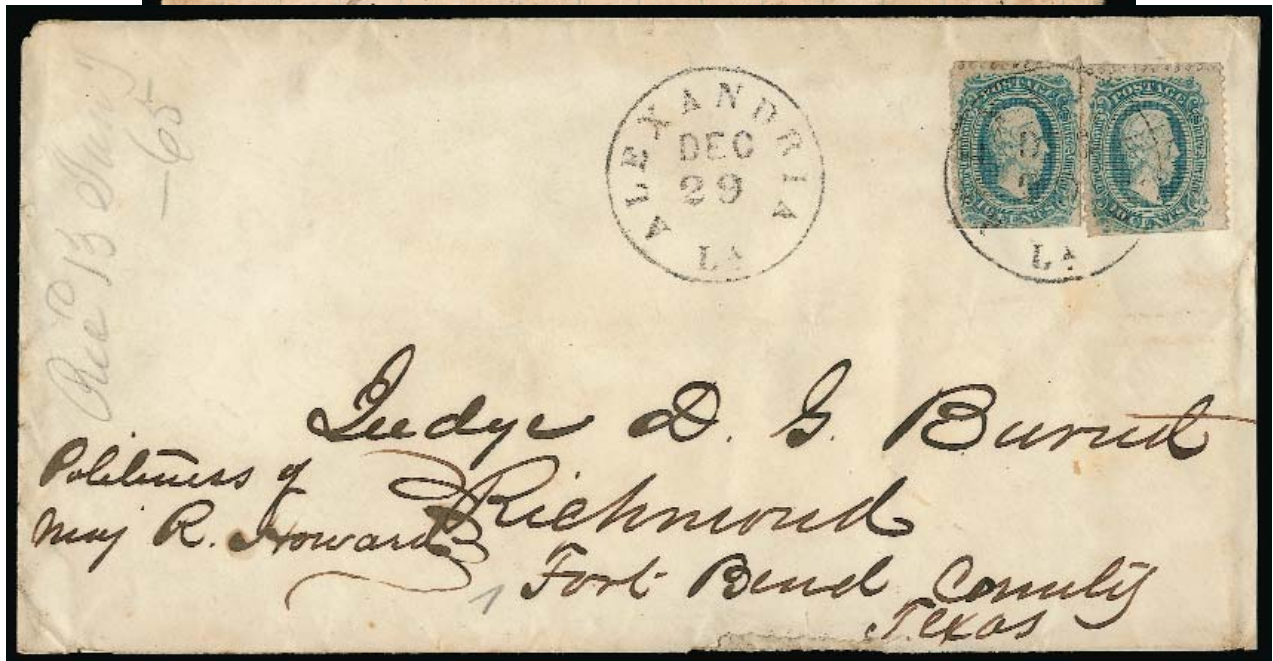 Rec'd 13 Jany
—65
ALEXANDRIA
DEC
29
LA
POSTAGE
POSTAGE
LA
Judge D. G. Burnet
Politeness of
Maj R. Howard
Richmond
Fort Bend County
Texas